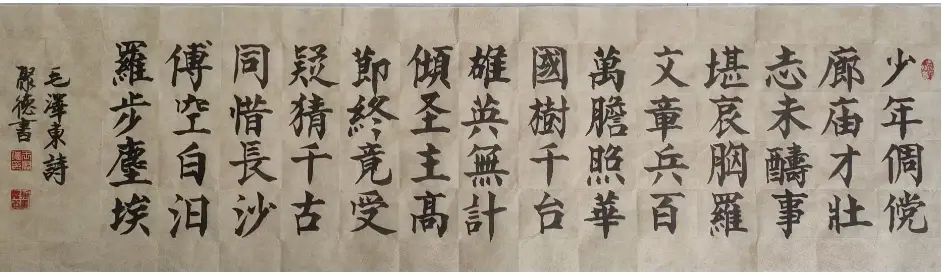 少年倜傥
廊庙才壯
志未醻事
堪哀胸羅
文章兵百
萬膽照華
國樹千台
雄英無計
傾圣主高
節終竟受
疑猜千古
同惜長沙
傅空白汨
羅步塵埃
毛澤東詩
聚德書